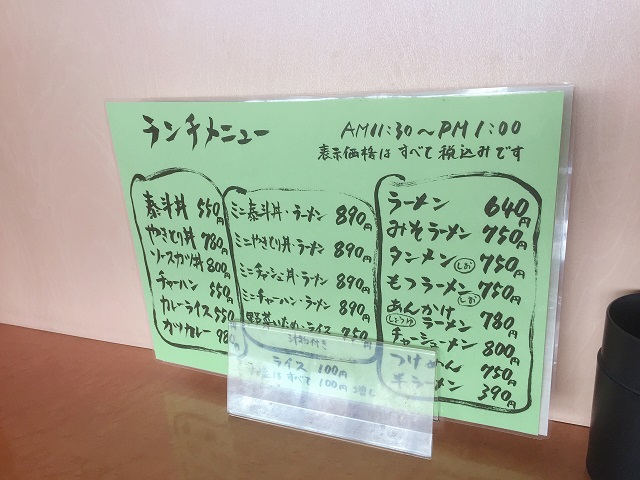 ランチメニュー
AM11:30〜PM1:00
表示価格はすべて税込みです
泰斗丼 550円
やきとり丼 780円
ソースカツ丼 800円
チャーハン 550円
カレーライス 550円
カツカレー 980円
ミニ泰斗丼・ラーメン 890円
ミニやきとり丼・ラーメン 890円
ミニチャーシュー丼・ラーメン 890円
ミニチャーハン・ラーメン 890円
野菜いため・ライス 750円
ラーメン 640円
みそラーメン 750円
タンメン(しお) 750円
もつラーメン(しお) 750円
あんかけ
(しょうゆ)ラーメン 780円
チャーシューメン 800円
つけめん 750円
半ラーメン 390円
ライス 100円
はすべて 100円増し